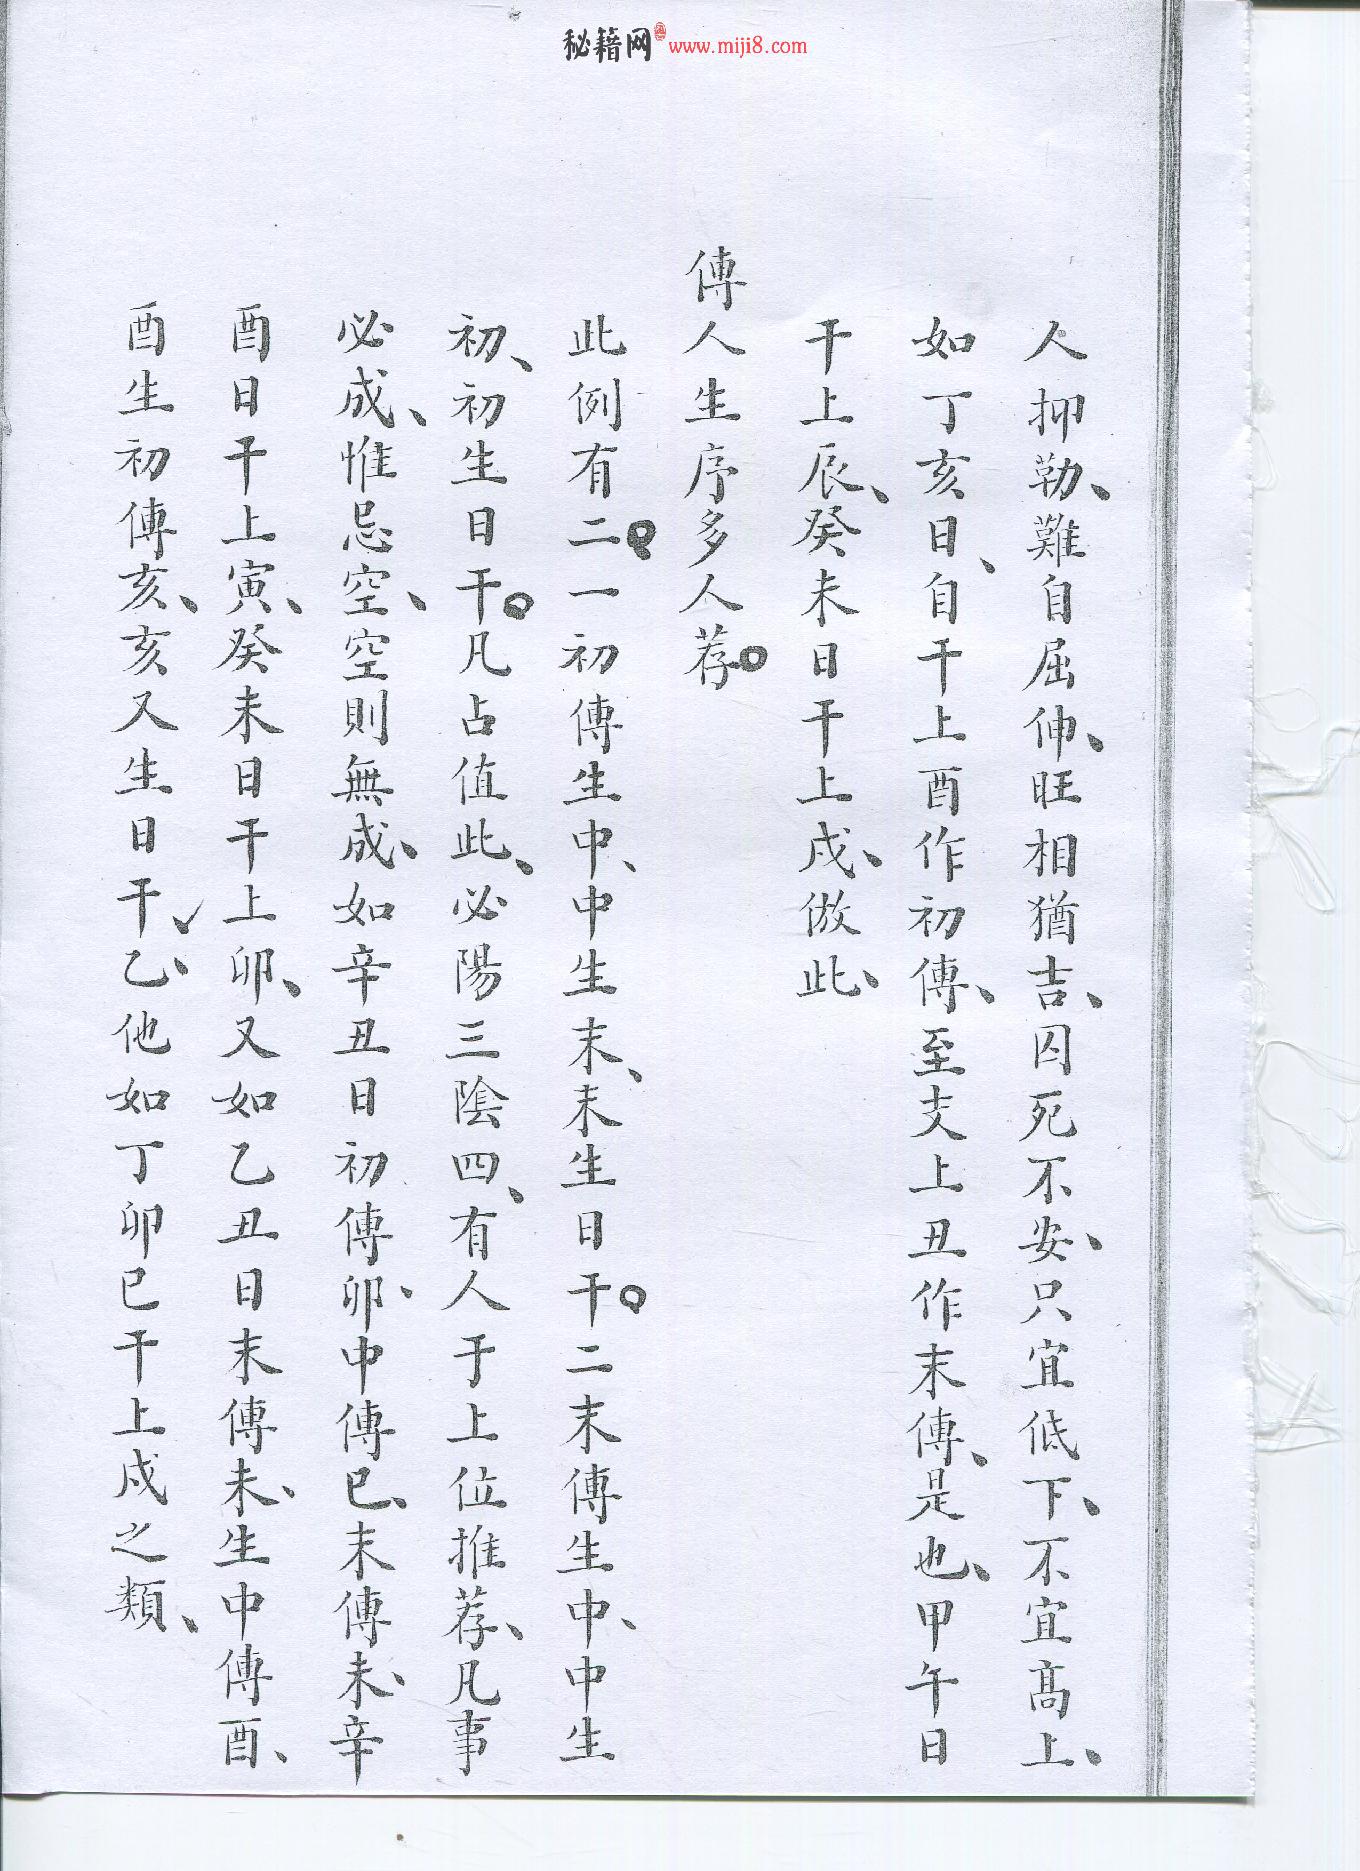 秘籍网 www.miji8.com
人抑勒、難自屈伸、旺相猶吉、囚死不安、只宜低下、不宜高上、
如丁亥日、自干上酉作初傳、至支上丑作末傳、是也、甲午日
干上辰、癸未日干上戌、倣此、
傳人生序多人荐。
此例有二。一初傳生中、中生末、末生日干。二末傳生中、中生
初、初生日干。凡占值此、必陽三陰四、有人于上位推荐、凡事
必成、惟忌空、空則無成、如辛丑日初傳卯、中傳巳、末傳未、辛
酉日干上寅、癸未日干上卯、又如乙丑日末傳未、生中傳酉、
酉生初傳亥、亥又生日干乙、他如丁卯巳干上戌之類、